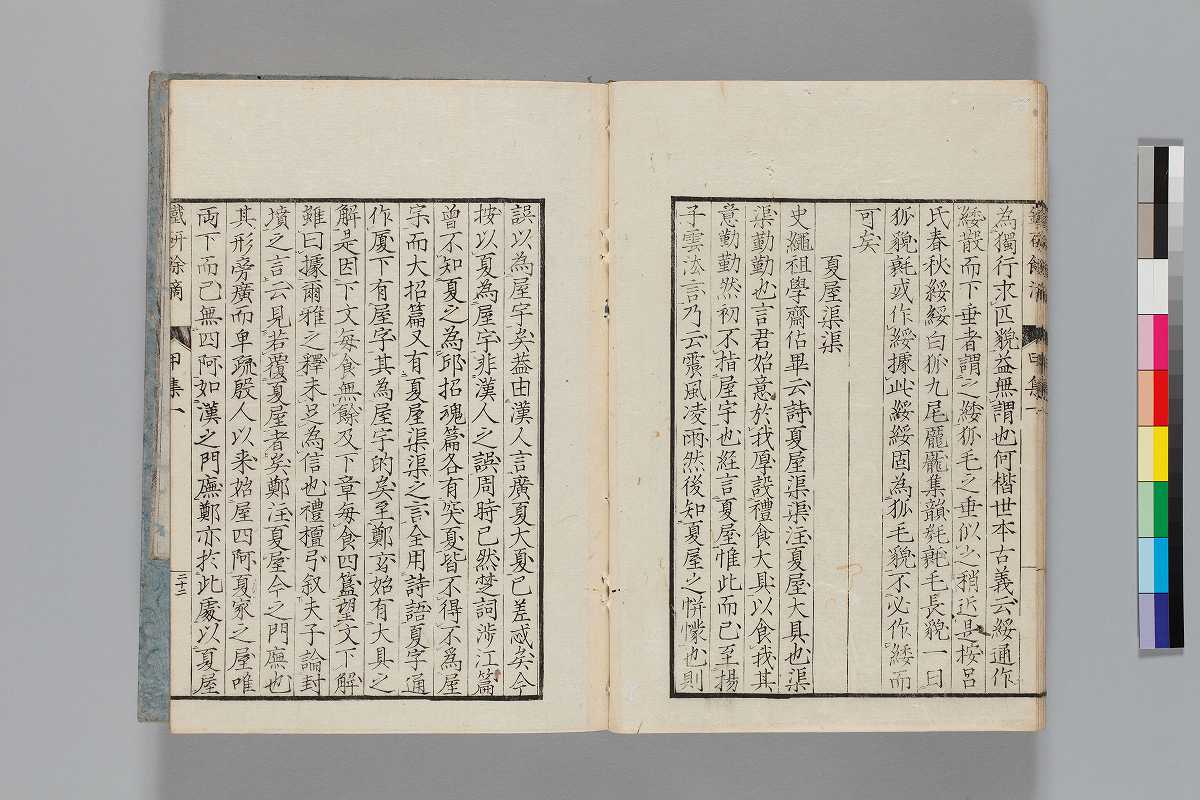 為獨行求匹貌益無謂也何楷世本古義云綏通作
緌散而下垂者謂之緌狐毛之垂似之稍近是按呂
氏春秋綏綏白狐九尾龐龐集韻毿毿毛長貌一曰
狐貌毿或作綏據此綏綏固為狐毛貌不必作緌而
可矣
夏屋渠渠
史繩祖學齋佔畢云詩夏屋渠渠注夏屋大具也渠
渠勤勤也言君始意於我厚設禮食大具以食我其
意勤勤然初不指屋宇也經言夏屋惟此而已至揚
子雲法言乃云震風凌雨然後知夏屋之帡幪也則
誤以為屋宇矣葢由漢人言廣夏大夏已差忒矣今
按以夏為屋宇非漢人之誤周時已然楚詞涉江篇
曾不知夏之為邱招魂篇各有突夏皆不得不為屋
宇而大招篇又有夏屋渠渠之言全用詩語夏字通
作厦下有屋字其為屋宇的矣至鄭玄始有大具之
解是因下文每食無餘及下章每食四簋望文下解
雖曰據爾雅之釋未足為信也禮檀弓叙夫子論封
墳之言云見若覆夏屋者矣鄭注夏屋今之門廡也
其形旁廣而卑疏殷人以来始屋四阿夏家之屋唯
兩下而已無四阿如漢之門廡鄭亦於此處以夏屋
鐵研餘滴
甲集一
三十二